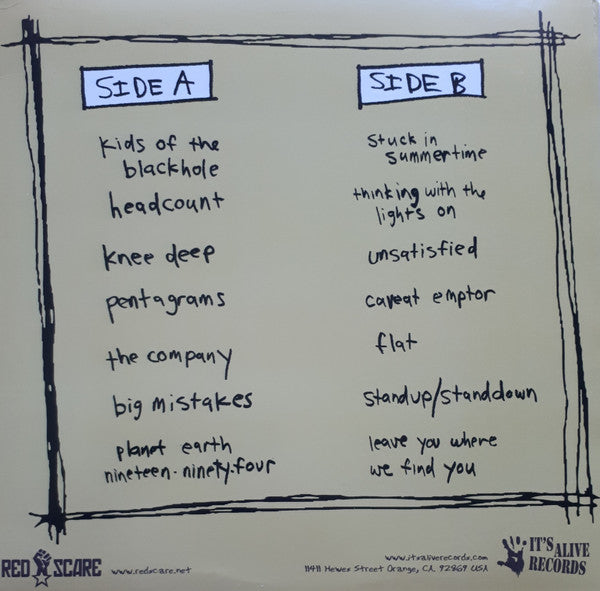 SIDE A
kids of the
blackhole
headcount
knee deep
pentagrams
the company
big mistakes
planet earth
nineteen-ninety-four
SIDE B
stuck in
summertime
thinking with the
lights on
unsatisfied
caveat emptor
flat
standup/standdown
leave you where
we find you
RED SCARE
www.redscare.net
www.itsaliverecords.com
11411 Hewes Street Orange, CA. 92869 USA
IT'S ALIVE
RECORDS